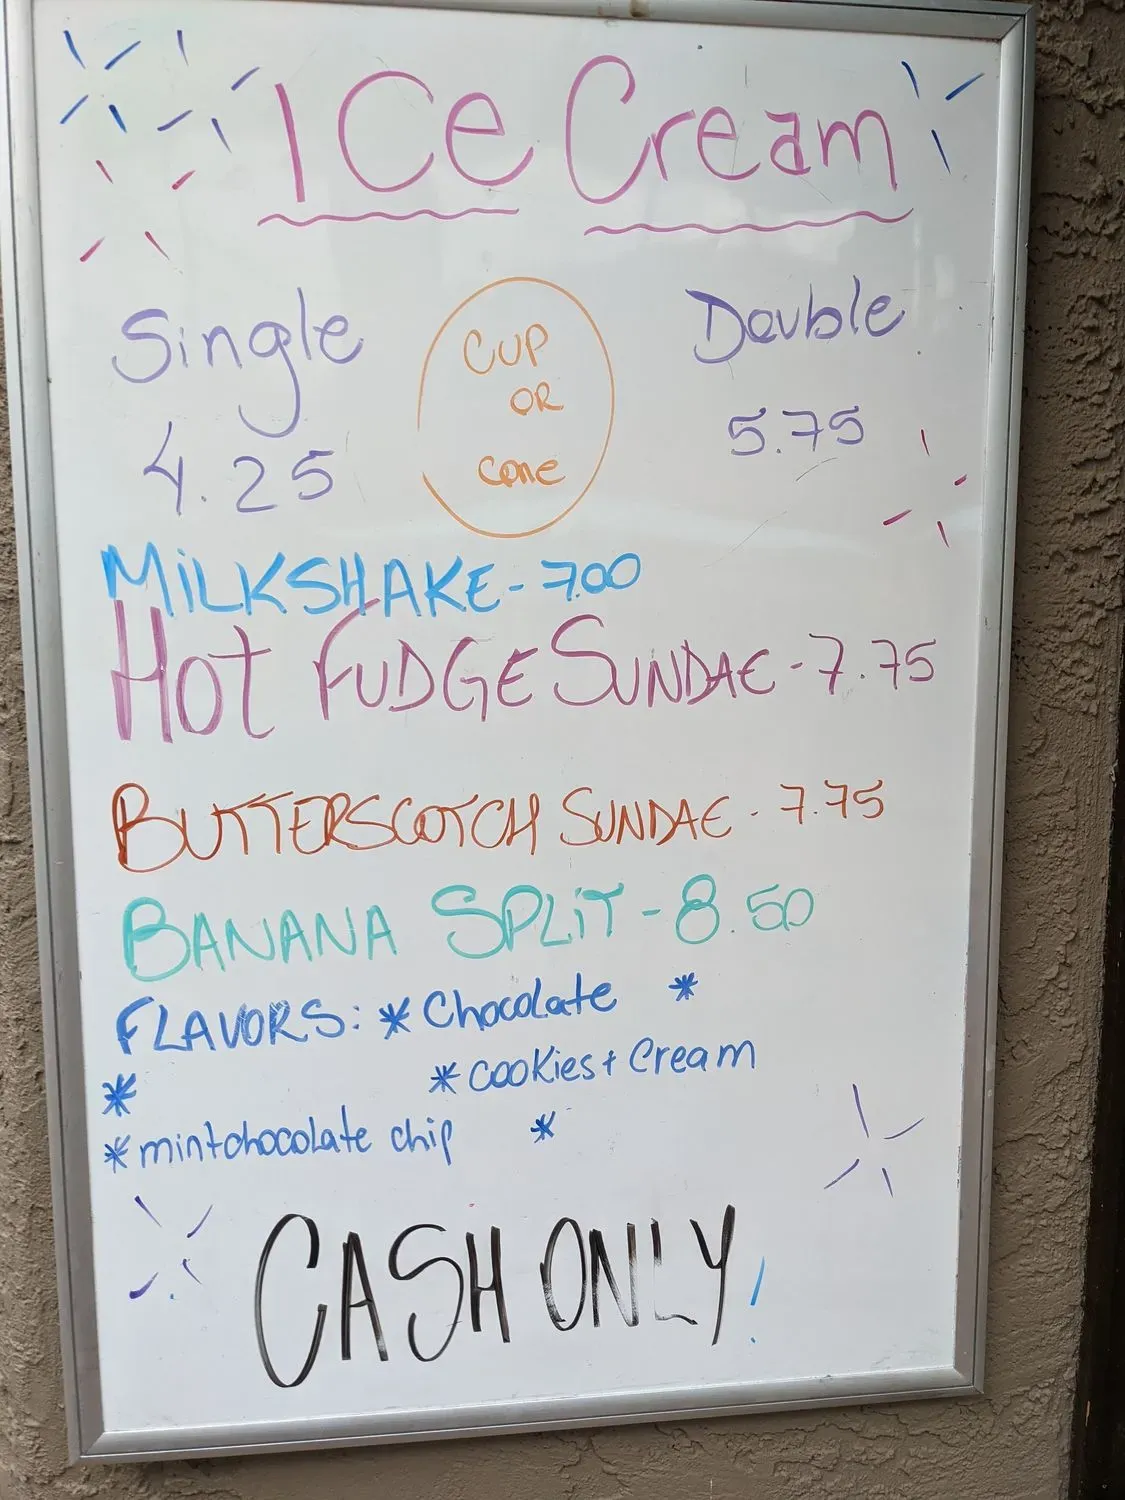 Ice Cream
Single CUP Double
OR
4.25 cone 5.75
MiLKSHAKE - 7.00
Hot FUDGE SUNDAE - 7.75
BUTTERSCOTCH SUNDAE - 7.75
BANANA SPLiT - 8.50
FLAVORS: * Chocolate *
* * cooKies + Cream
* mint chocolate chip *
CASH ONLY!